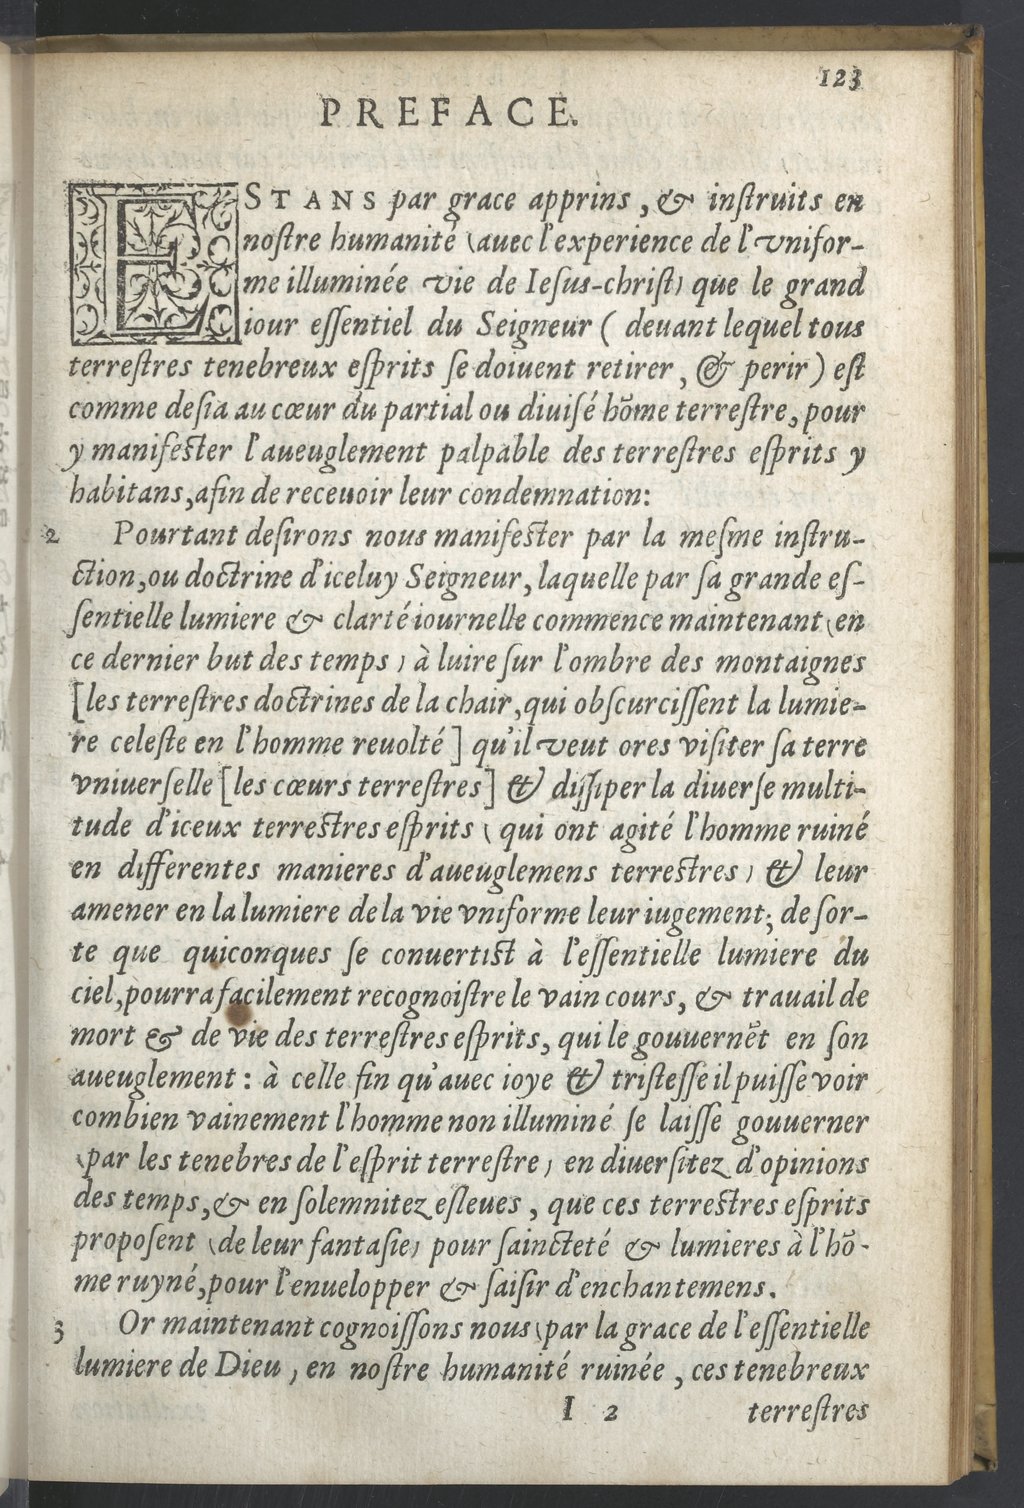 123
PREFACE.
ESTANS par grace apprins, & inſtruits en
noſtre humanité (auec l'experience de l'vnifor-
me illuminée vie de Ieſus-chriſt) que le grand
iour eſſentiel du Seigneur ( deuant lequel tous
terreſtres tenebreux eſprits ſe doiuent retirer, & perir) eſt
comme deſia au cœur du partial ou diuiſé hõme terreſtre, pour
y manifeſter l'aueuglement palpable des terreſtres eſprits y
habitans, afin de receuoir leur condemnation:
2 Pourtant deſirons nous manifeſter par la meſme inſtru-
ction, ou doctrine d'iceluy Seigneur, laquelle par ſa grande eſ-
ſentielle lumiere & clarté iournelle commence maintenant (en
ce dernier but des temps) à luire ſur l'ombre des montaignes
[les terreſtres doctrines de la chair, qui obſcurciſſent la lumie-
re celeſte en l'homme reuolté] qu'il veut ores viſiter ſa terre
vniuerſelle [les cœurs terreſtres] & diſſiper la diuerſe multi-
tude d'iceux terreſtres eſprits (qui ont agité l'homme ruiné
en differentes manieres d'aueuglemens terreſtres) & leur
amener en la lumiere de la vie vniforme leur iugement; de ſor-
te que quiconques ſe conuertiſt à l'eſſentielle lumiere du
ciel, pourra facilement recognoiſtre le vain cours, & trauail de
mort & de vie des terreſtres eſprits, qui le gouuernẽt en ſon
aueuglement: à celle fin qu'auec ioye & triſteſſe il puiſſe voir
combien vainement l'homme non illuminé ſe laiſſe gouuerner
(par les tenebres de l'eſprit terreſtre) en diuerſitez d'opinions
des temps, & en ſolemnitez eſleues, que ces terreſtres eſprits
propoſent (de leur fantaſie) pour ſaincteté & lumieres à l'hõ-
me ruyné, pour l'enuelopper & ſaiſir d'enchantemens.
3 Or maintenant cognoiſſons nous (par la grace de l'eſſentielle
lumiere de Dieu, en noſtre humanité ruinée, ces tenebreux
I 2 terreſtres